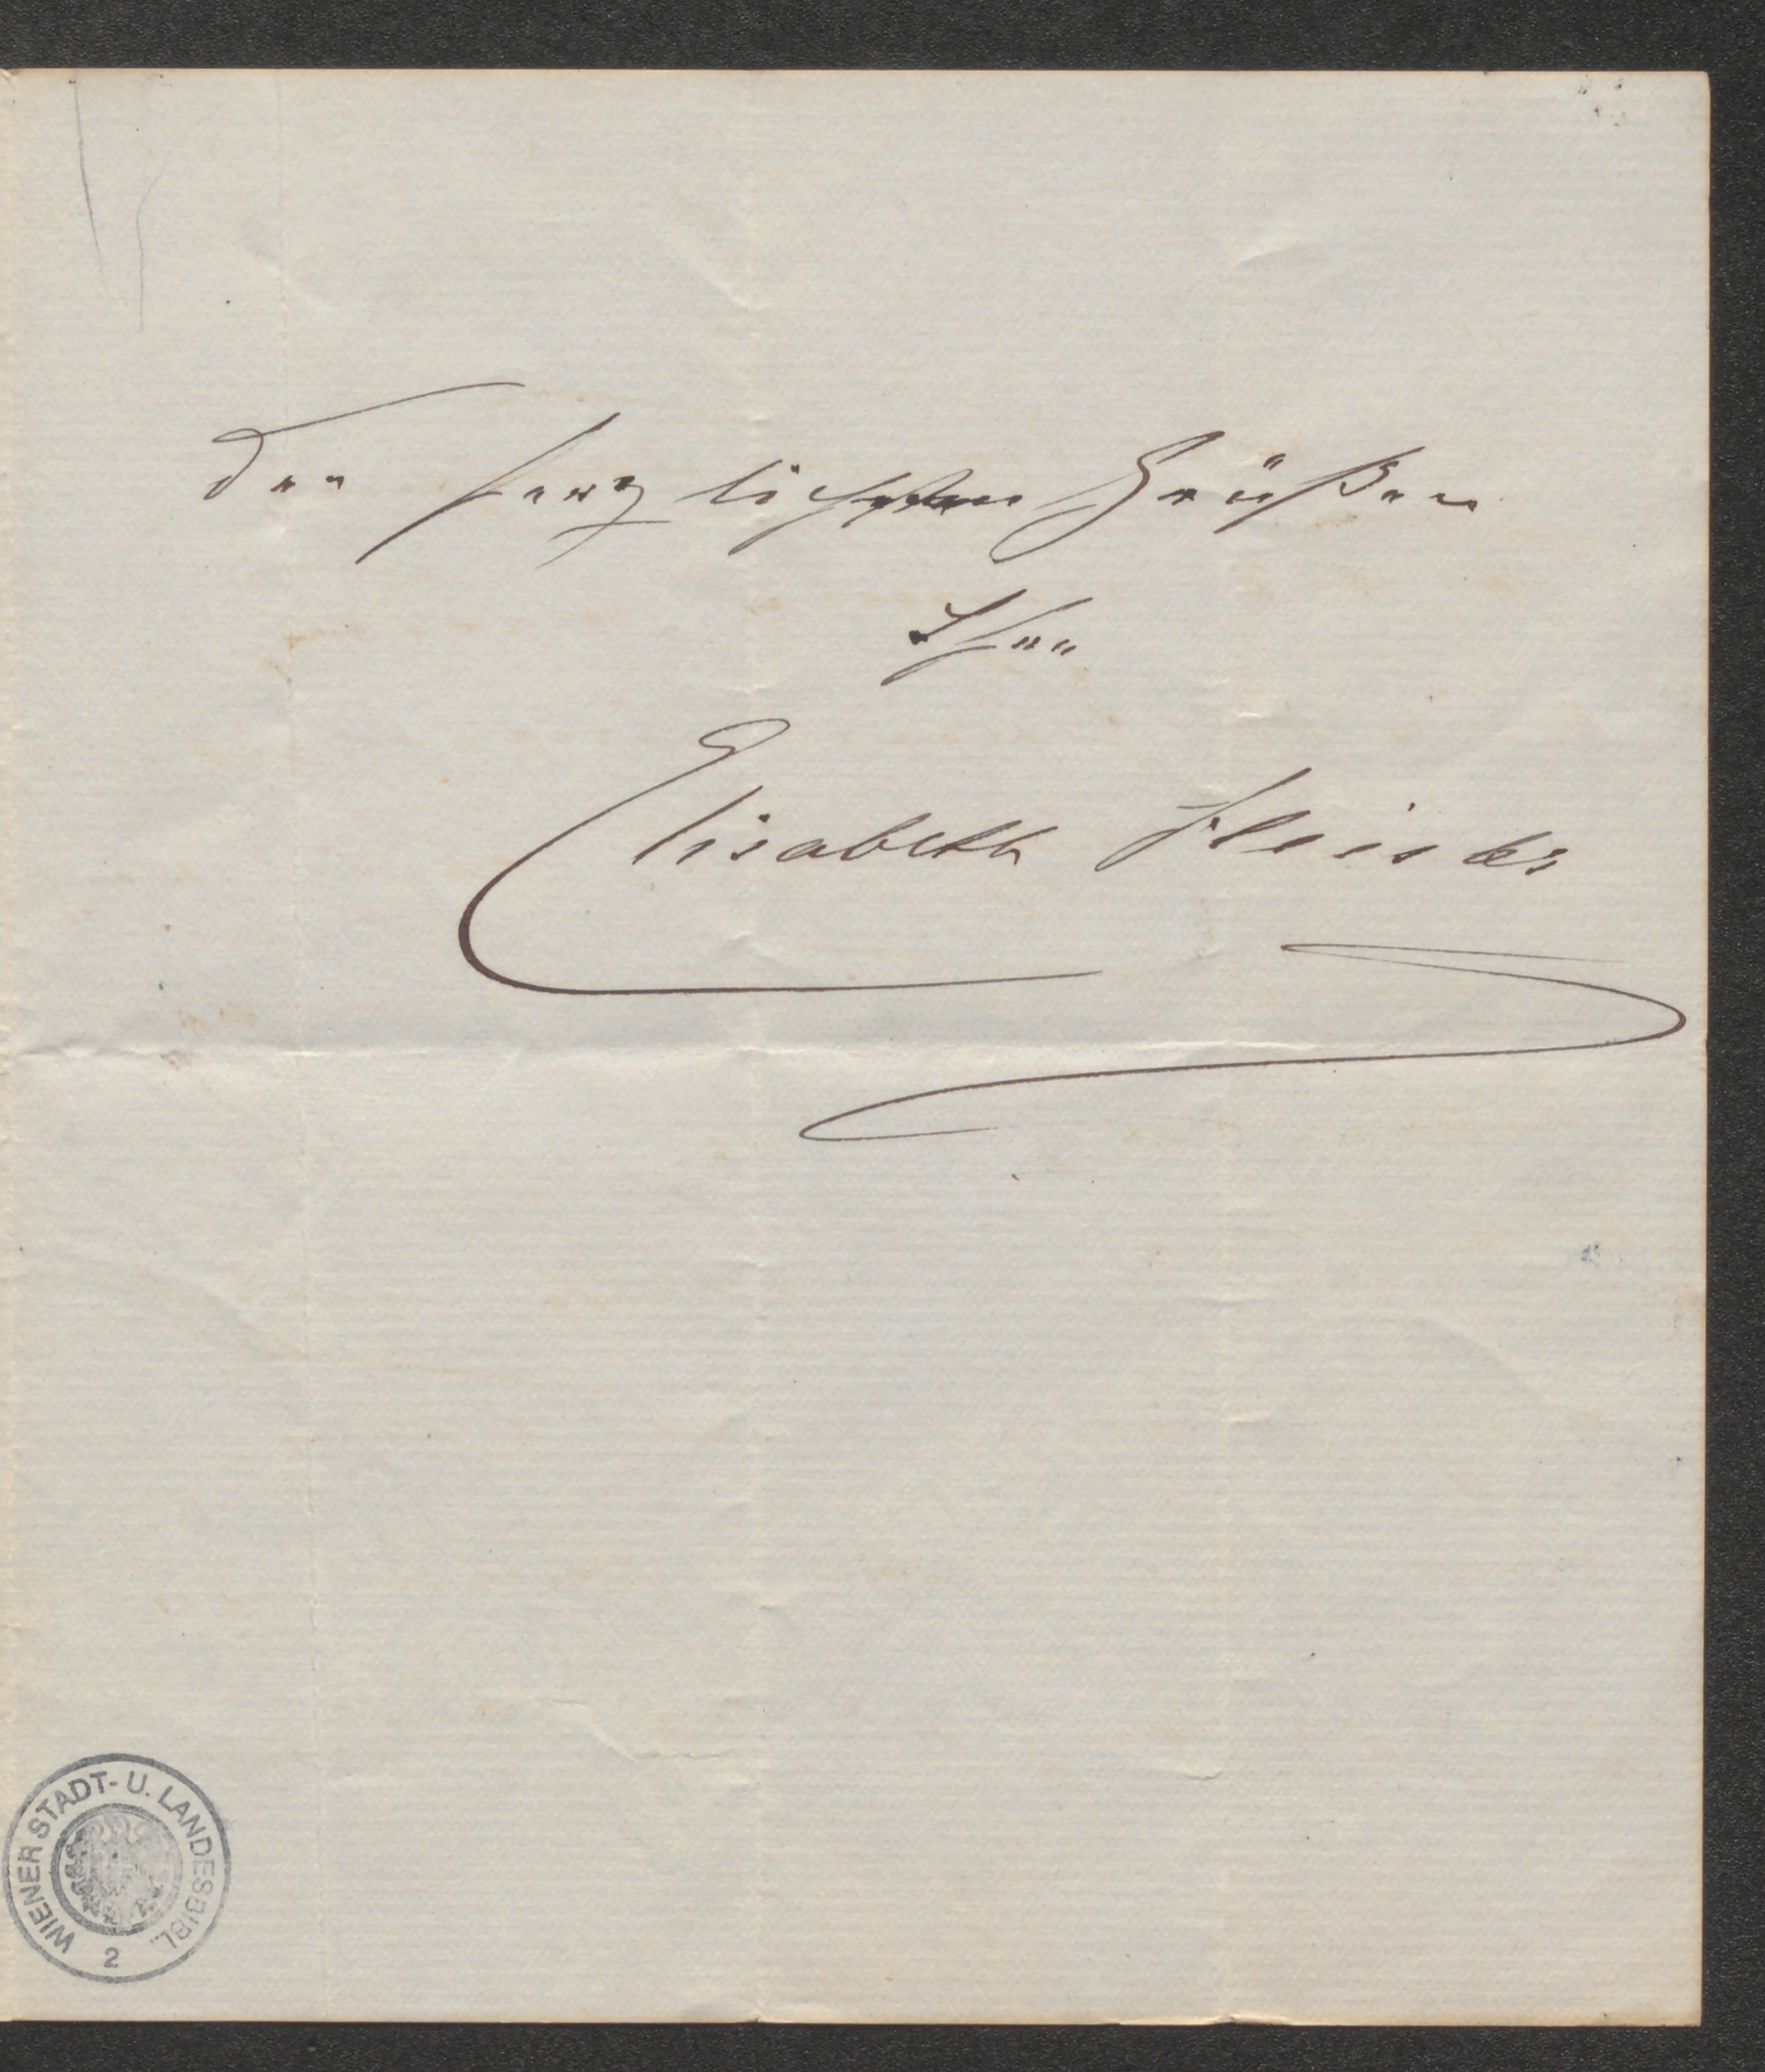 den herzlichsten Grüßen
Ihre
Elisabeth Gleisler
WIENER STADT- U. LANDESBIBL.
2